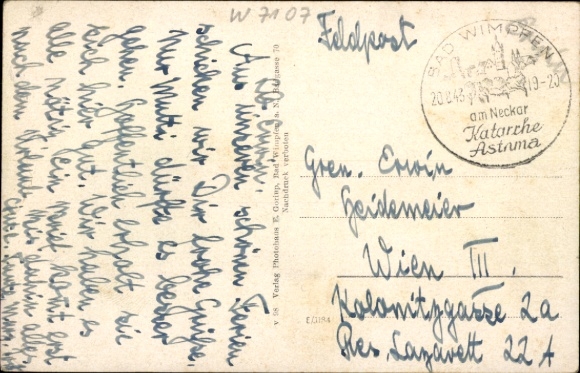 W 7107
Feldpost
BAD WIMPFEN
20.8.43 19-20
am Neckar
Katarrhe
Asthma
Gren. Erwin
Heidemeier
Wien III.
Kolonitzgasse 2a
Res. Lazarett 22 A
v 98 Verlag Photohaus E. Gorlep, Bad Wimpfen a. N., Burggasse 70
Nachdruck verboten
Aus unseren schönen Ferien
schicken wir Dir liebe Grüße.
Mutti dürfte es besser
gehen. Hoffentlich erholt sie
sich hier gut. Wir haben es
alle nötig. Ein
nach dem